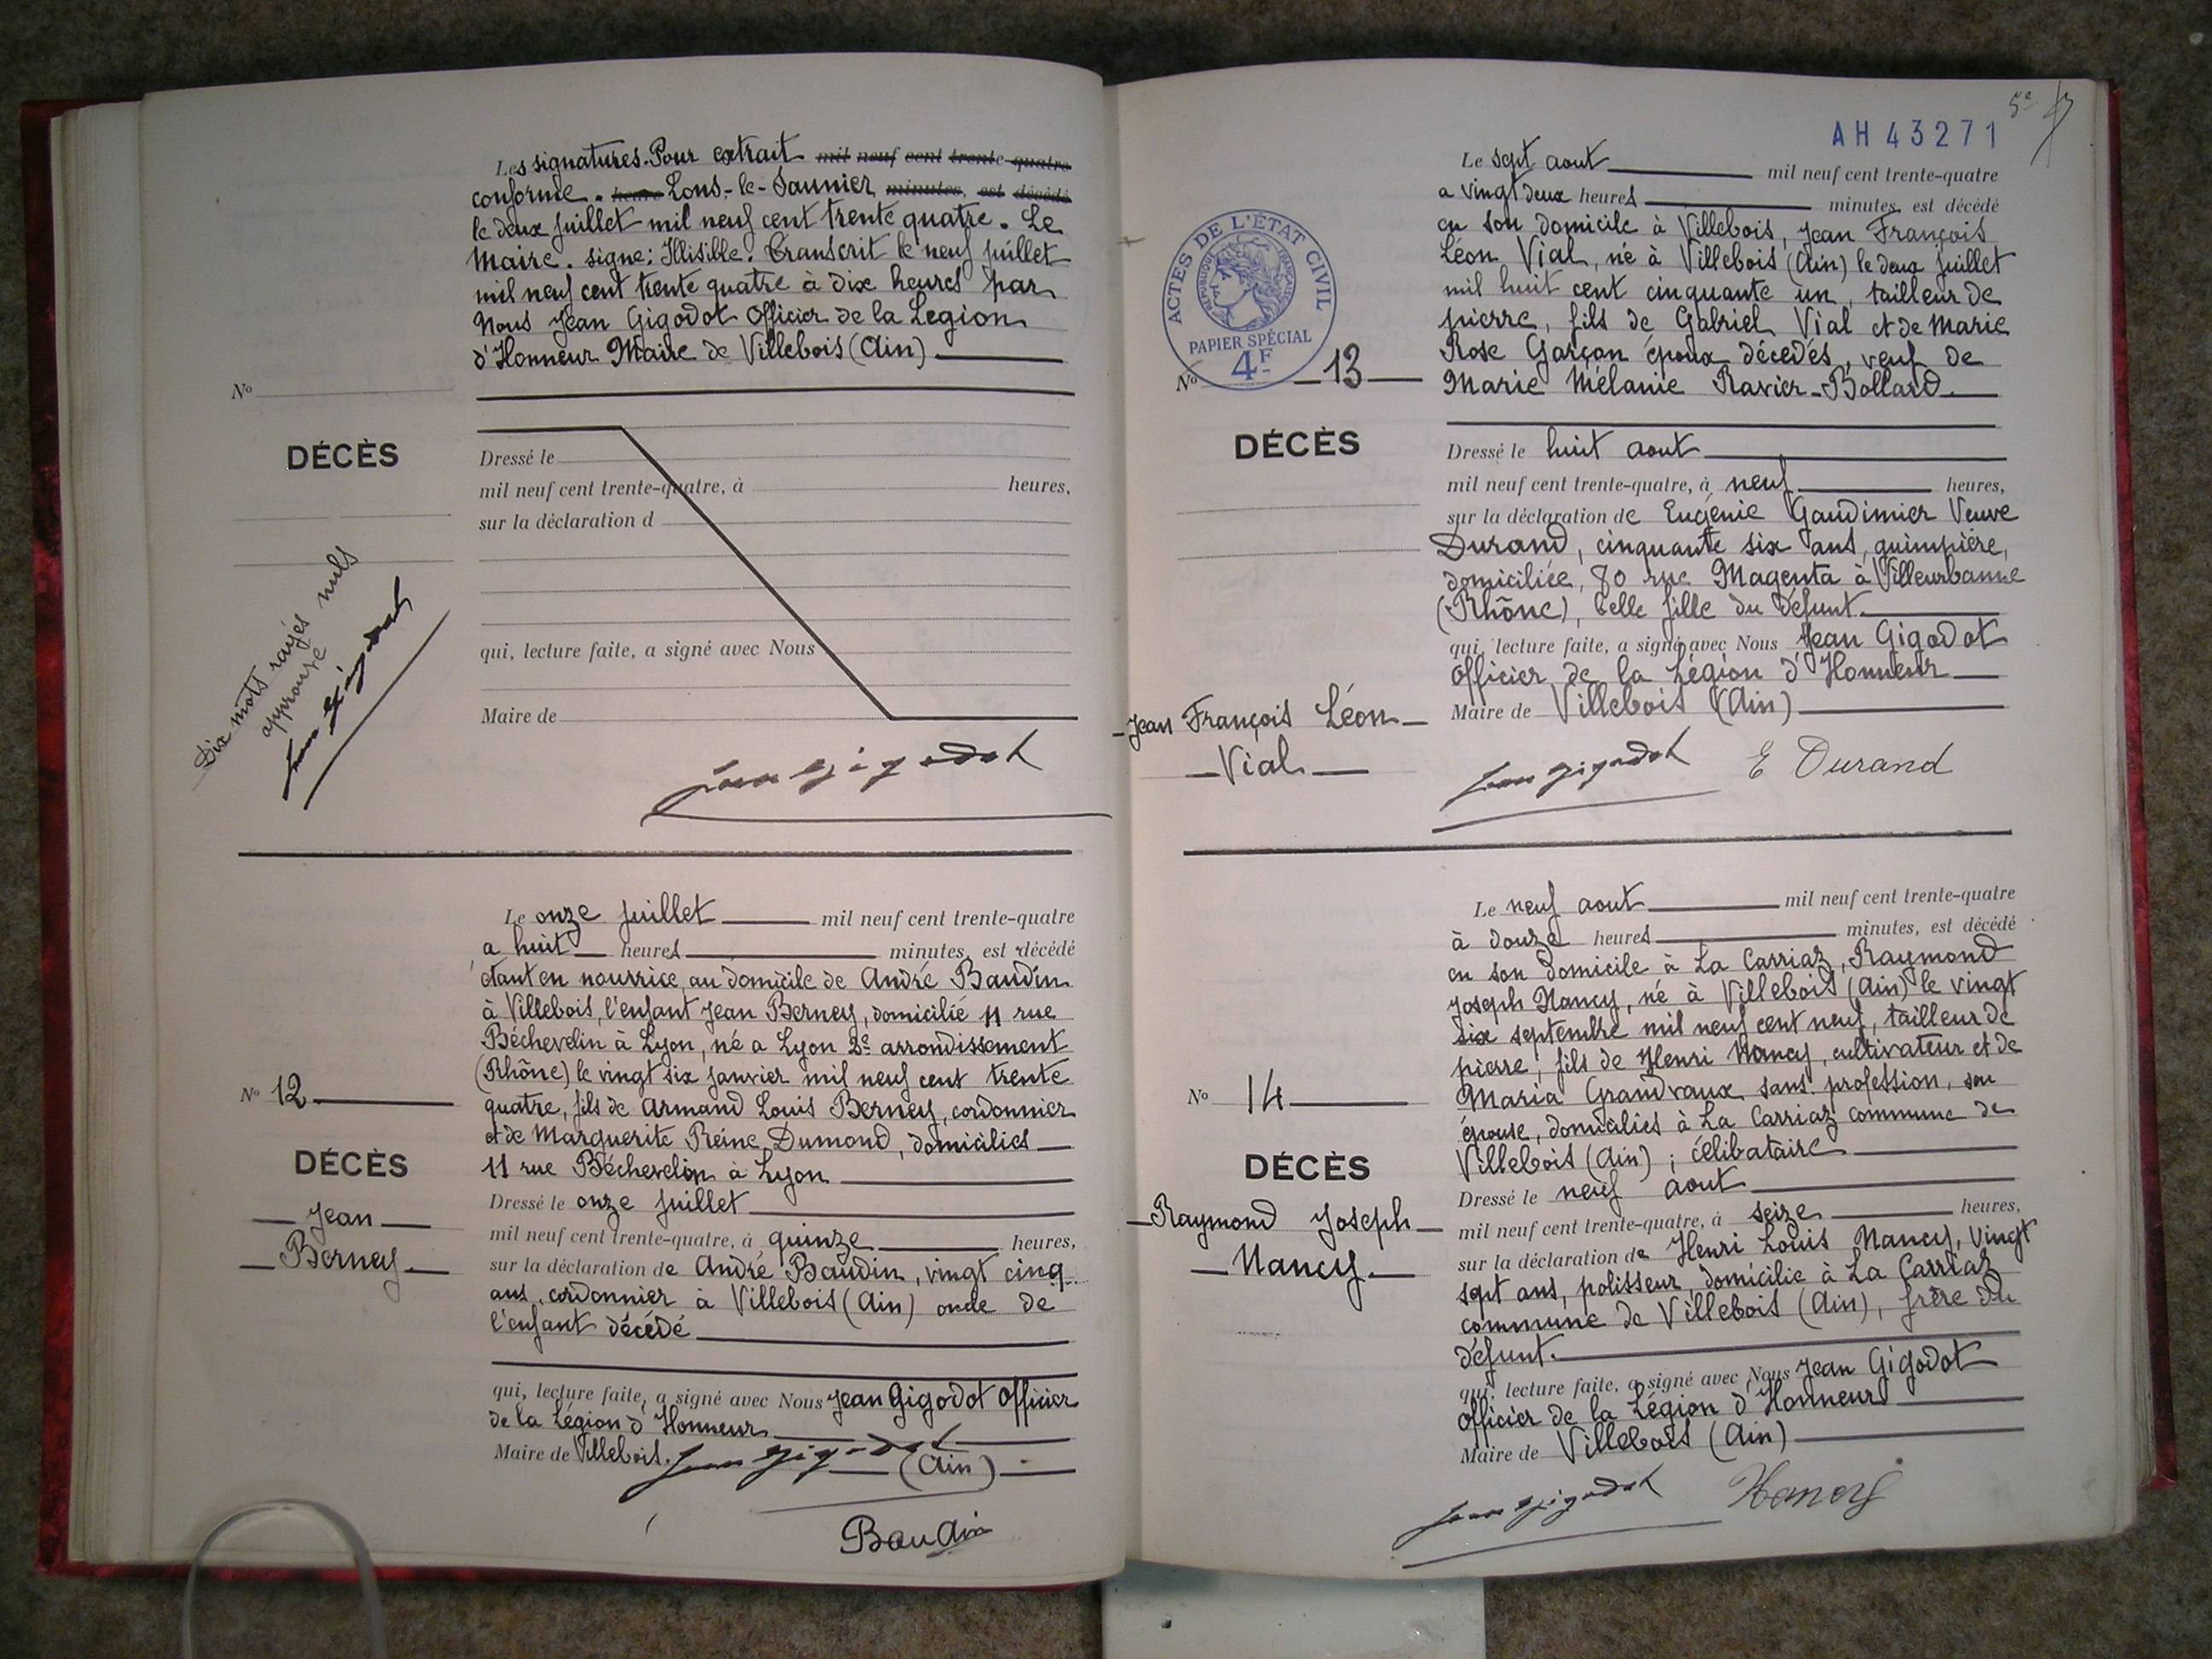 Les signatures. Pour extrait mil neuf cent trente-quatre
conforme. heure Lons-le-Saunier minutes, est décédé
le deux juillet mil neuf cent trente quatre. Le
Maire. signé: Illisible. Transcrit le neuf juillet
mil neuf cent trente quatre à dix heures par
Nous Jean Gigodot Officier de la Légion
d'Honneur Maire de Villebois (Ain)
No
DÉCÈS
Dressé le
mil neuf cent trente-quatre, à heures,
sur la déclaration d
qui, lecture faite, a signé avec Nous
Maire de
Dix mots rayés nuls
approuvé
Jean Gigodot
Jean Gigodot
Le onze juillet mil neuf cent trente-quatre
a huit heures minutes, est décédé
étant en nourrice au domicile de André Baudin
à Villebois, l'enfant Jean Berney, domicilié 11 rue
Béchevelin à Lyon, né a Lyon 2e arrondissement
(Rhône) le vingt six janvier mil neuf cent trente
quatre, fils de Armand Louis Berney, cordonnier
et de Marguerite Reine Dumond, domiciliés
11 rue Béchevelin à Lyon
No 12
DÉCÈS
Jean
Berney
Dressé le onze juillet
mil neuf cent trente-quatre, à quinze heures,
sur la déclaration de André Baudin, vingt cinq
ans, cordonnier à Villebois (Ain) oncle de
l'enfant décédé
qui, lecture faite, a signé avec Nous Jean Gigodot Officier
de la Légion d'Honneur
Maire de Villebois. (Ain)
Jean Gigodot
Baudin
5e
AH 43271
Le sept aout mil neuf cent trente-quatre
a vingt deux heures minutes, est décédé
en son domicile à Villebois, Jean François
Léon Vial, né à Villebois (Ain) le deux juillet
mil huit cent cinquante un, tailleur de
pierre, fils de Gabriel Vial et de Marie
Rose Garçon époux décédés, veuf de
Marie Mélanie Ravier-Bollard.
ACTES DE L'ÉTAT CIVIL
RÉPUBLIQUE FRANÇAISE
PAPIER SPÉCIAL
4F
No 13
DÉCÈS
Jean François Léon
Vial
Dressé le huit aout
mil neuf cent trente-quatre, à neuf heures,
sur la déclaration de Eugénie Gaudimier Veuve
Durand, cinquante six ans, guimpière,
domiciliée, 80 rue Magenta à Villeurbanne
(Rhône), belle fille du défunt.
qui, lecture faite, a signé avec Nous Jean Gigodot
Officier de la Légion d'Honneur
Maire de Villebois (Ain)
Jean Gigodot E Durand
Le neuf aout mil neuf cent trente-quatre
à douze heures minutes, est décédé
en son domicile à La Carriaz, Raymond
Joseph Nancy, né à Villebois (Ain) le vingt
six septembre mil neuf cent neuf, tailleur de
pierre, fils de Henri Nancy, cultivateur et de
Maria Grandvaux sans profession, son
épouse, domiciliés à La Carriaz commune de
Villebois (Ain) ; célibataire
No 14
DÉCÈS
Raymond Joseph
Nancy
Dressé le neuf aout
mil neuf cent trente-quatre, à seize heures,
sur la déclaration de Henri Louis Nancy, vingt
sept ans, polisseur, domicilié à La Carriaz
commune de Villebois (Ain), frère du
défunt.
qui, lecture faite, a signé avec Nous Jean Gigodot
Officier de la Légion d'Honneur
Maire de Villebois (Ain)
Jean Gigodot Nancy